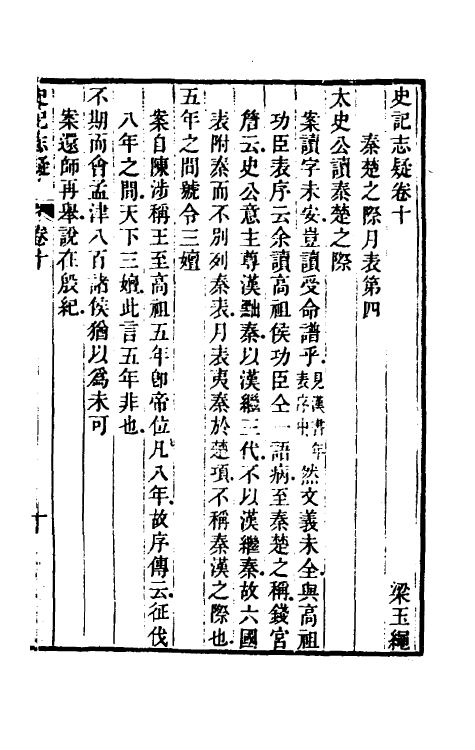 史記志疑卷十
梁玉繩
秦楚之際月表第四
太史公讀秦楚之際
案讀字未安豈讀受命譜乎見漢書年表序中然文義未全與高祖
功臣表序云余讀高祖侯功臣仝一語病至秦楚之稱錢宫
詹云史公意主尊漢黜秦以漢繼三代不以漢繼秦故六國
表附秦而不别列秦表月表夷秦於楚項不稱秦漢之際也
五年之間號令三嬗
案自陳涉稱王至高祖五年卽帝位凡八年故序傳云征伐
八年之間天下三嬗此言五年非也
不期而會孟津八百諸侯猶以爲未可
案還師再舉說在殷紀
史記志疑
卷十
十